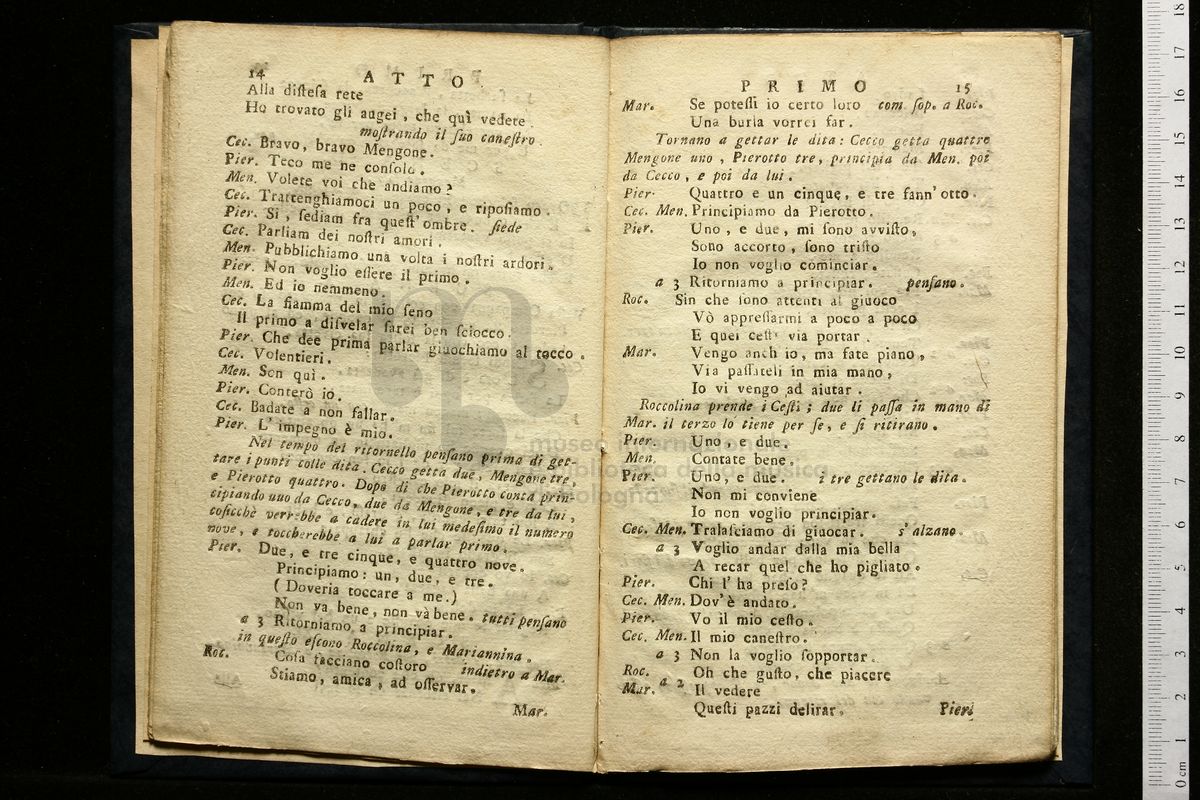 14 ATTO
Alla disteſa rete
Ho trovato gli augei, che quì vedete
moſtrando il ſuo caneſtro.
Cec. Bravo, bravo Mengone.
Pier. Teco me ne conſolo.
Men. Volete voi che andiamo?
Cec. Trattenghiamoci un poco, e ripoſiamo.
Pier. Sì, ſediam fra queſt'ombre. ſiede
Cec. Parliam dei noſtri amori.
Men. Pubblichiamo una volta i noſtri ardori.
Pier. Non voglio eſſere il primo.
Men. Ed io nemmeno
Cec. La fiamma del mio ſeno
Il primo a diſvelar ſarei ben ſciocco.
Pier. Che dee prima parlar giuochiamo al tocco.
Cec. Volentieri.
Men. Son quì.
Pier. Conterò io.
Cec. Badate a non fallar.
Pier. L'impegno è mio.
Nel tempo del ritornello penſano prima di get-
tare i punti colle dita. Cecco getta due, Mengone tre,
e Pierotto quattro. Dopo di che Pierotto conta prin-
cipiando uno da Cecco, due da Mengone, e tre da lui,
coſicchè verrebbe a cadere in lui medeſimo il numero
nove, e toccherebbe a lui a parlar primo.
Pier. Due, e tre cinque, e quattro nove.
Principiamo: un, due, e tre.
(Doveria toccare a me.)
Non va bene, non và bene. tutti penſano
a 3 Ritorniamo a principiar.
in queſto eſcono Roccolina, e Mariannina.
Roc. Coſa facciano coſtoro indietro a Mar.
Stiamo, amica, ad oſſervar.
Mar.
PRIMO 15
Mar. Se poteſſi io certo loro com. ſop. a Roc.
Una burla vorrei far.
Tornano a gettar le dita: Cecco getta quattro
Mengone uno, Pierotto tre, principia da Men. poi
da Cecco, e poi da lui.
Pier. Quattro e un cinque, e tre fann'otto.
Cec. Men. Principiamo da Pierotto.
Pier. Uno, e due, mi ſono avviſto,
Sono accorto, ſono triſto
Io non voglio cominciar.
a 3 Ritorniamo a principiar. penſano.
Roc. Sin che ſono attenti al giuoco
Vò appreſſarmi a poco a poco
E quei ceſti via portar.
Mar. Vengo anch io, ma fate piano,
Via paſſateli in mia mano,
Io vi vengo ad aiutar.
Roccolina prende i Ceſti; due li paſſa in mano di
Mar. il terzo lo tiene per ſe, e ſi ritirano.
Pier. Uno, e due.
Men. Contate bene.
Pier. Uno, e due. i tre gettano le dita.
Non mi conviene
Io non voglio principiar.
Cec. Men. Tralaſciamo di giuocar. s'alzano.
a 3 Voglio andar dalla mia bella
A recar quel che ho pigliato.
Pier. Chi l'ha preſo?
Cec. Men. Dov'è andato.
Pier. Vo il mio ceſto.
Cec. Men. Il mio caneſtro.
a 3 Non la voglio ſopportar.
Roc. Oh che guſto, che piacere
Mar. a 2 Il vedere
Queſti pazzi delirar.
Pier.
museo internazionale
e biblioteca della musica
bologna